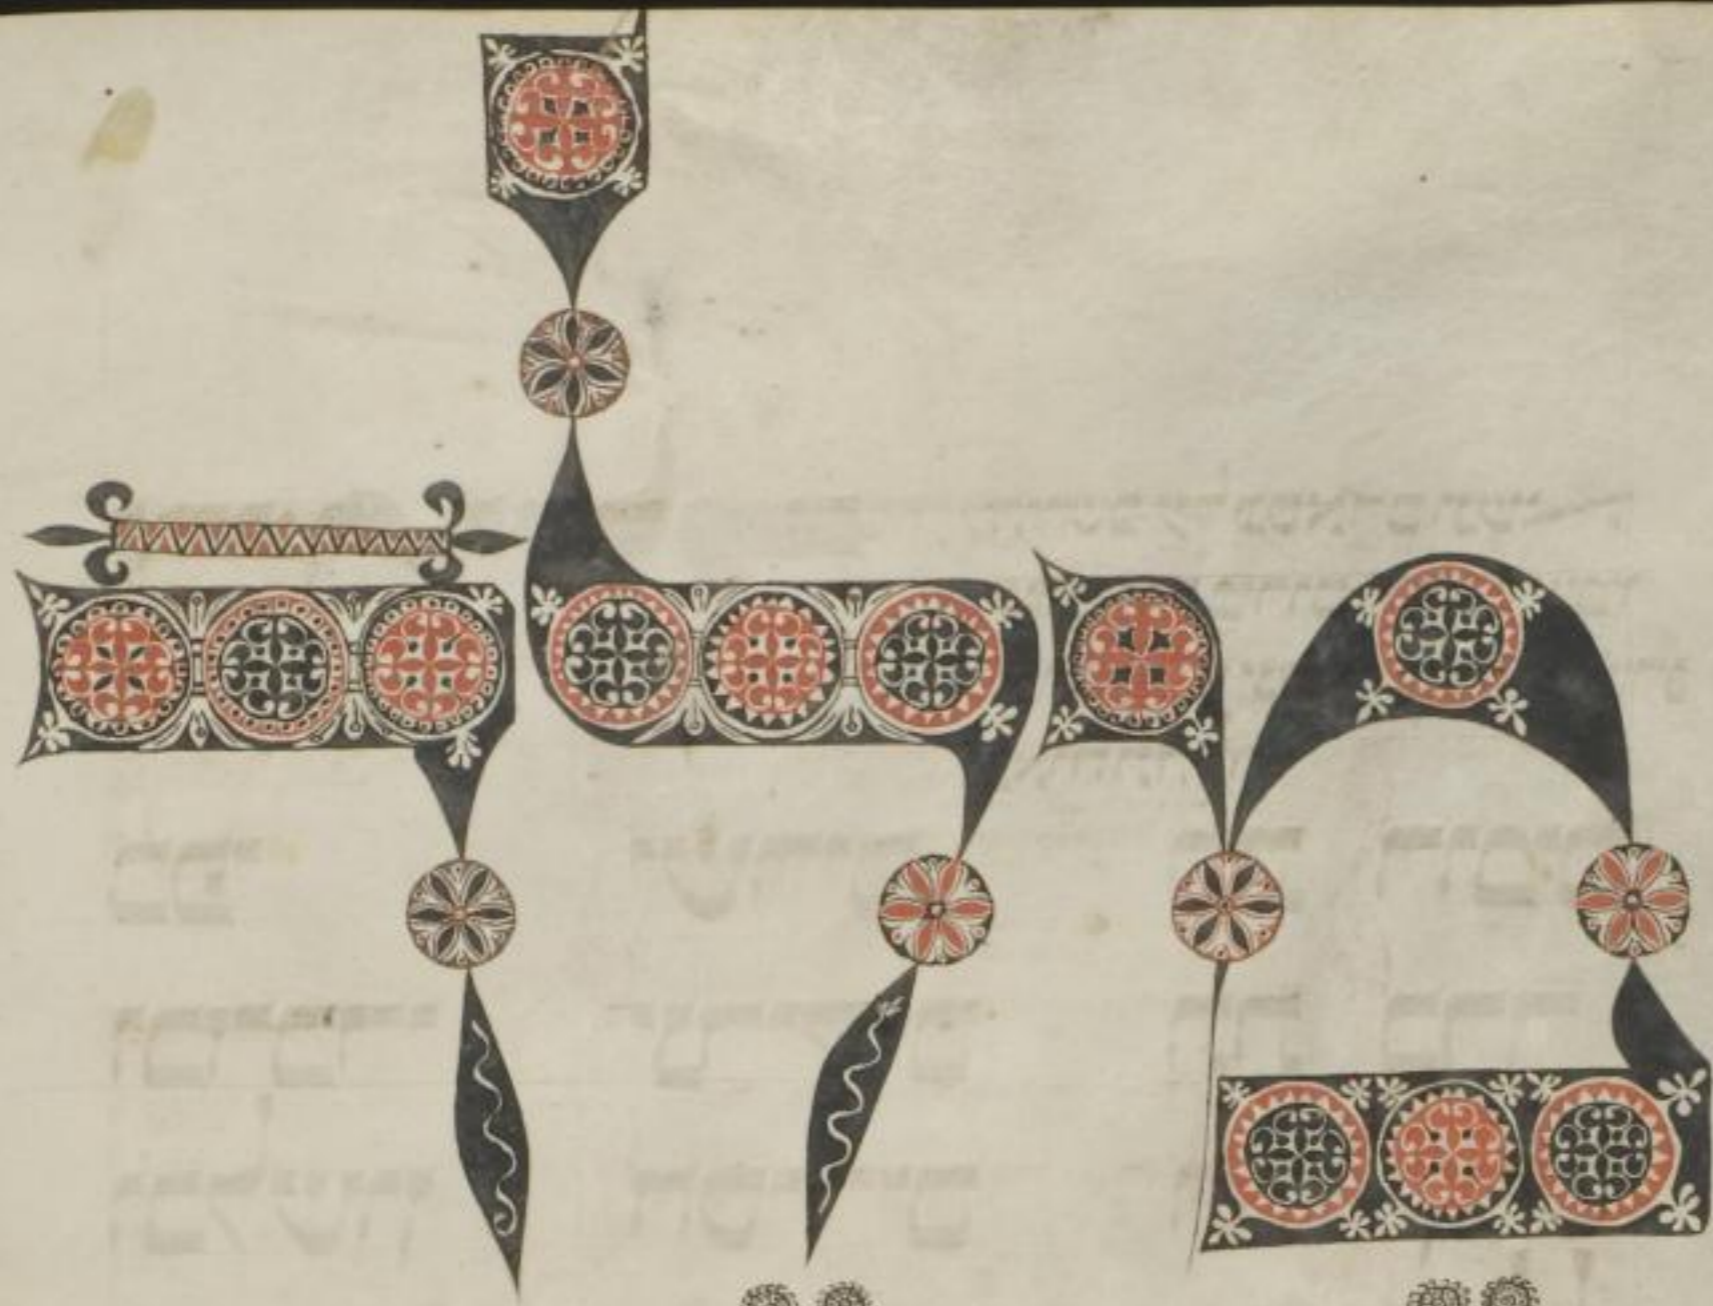 מלך